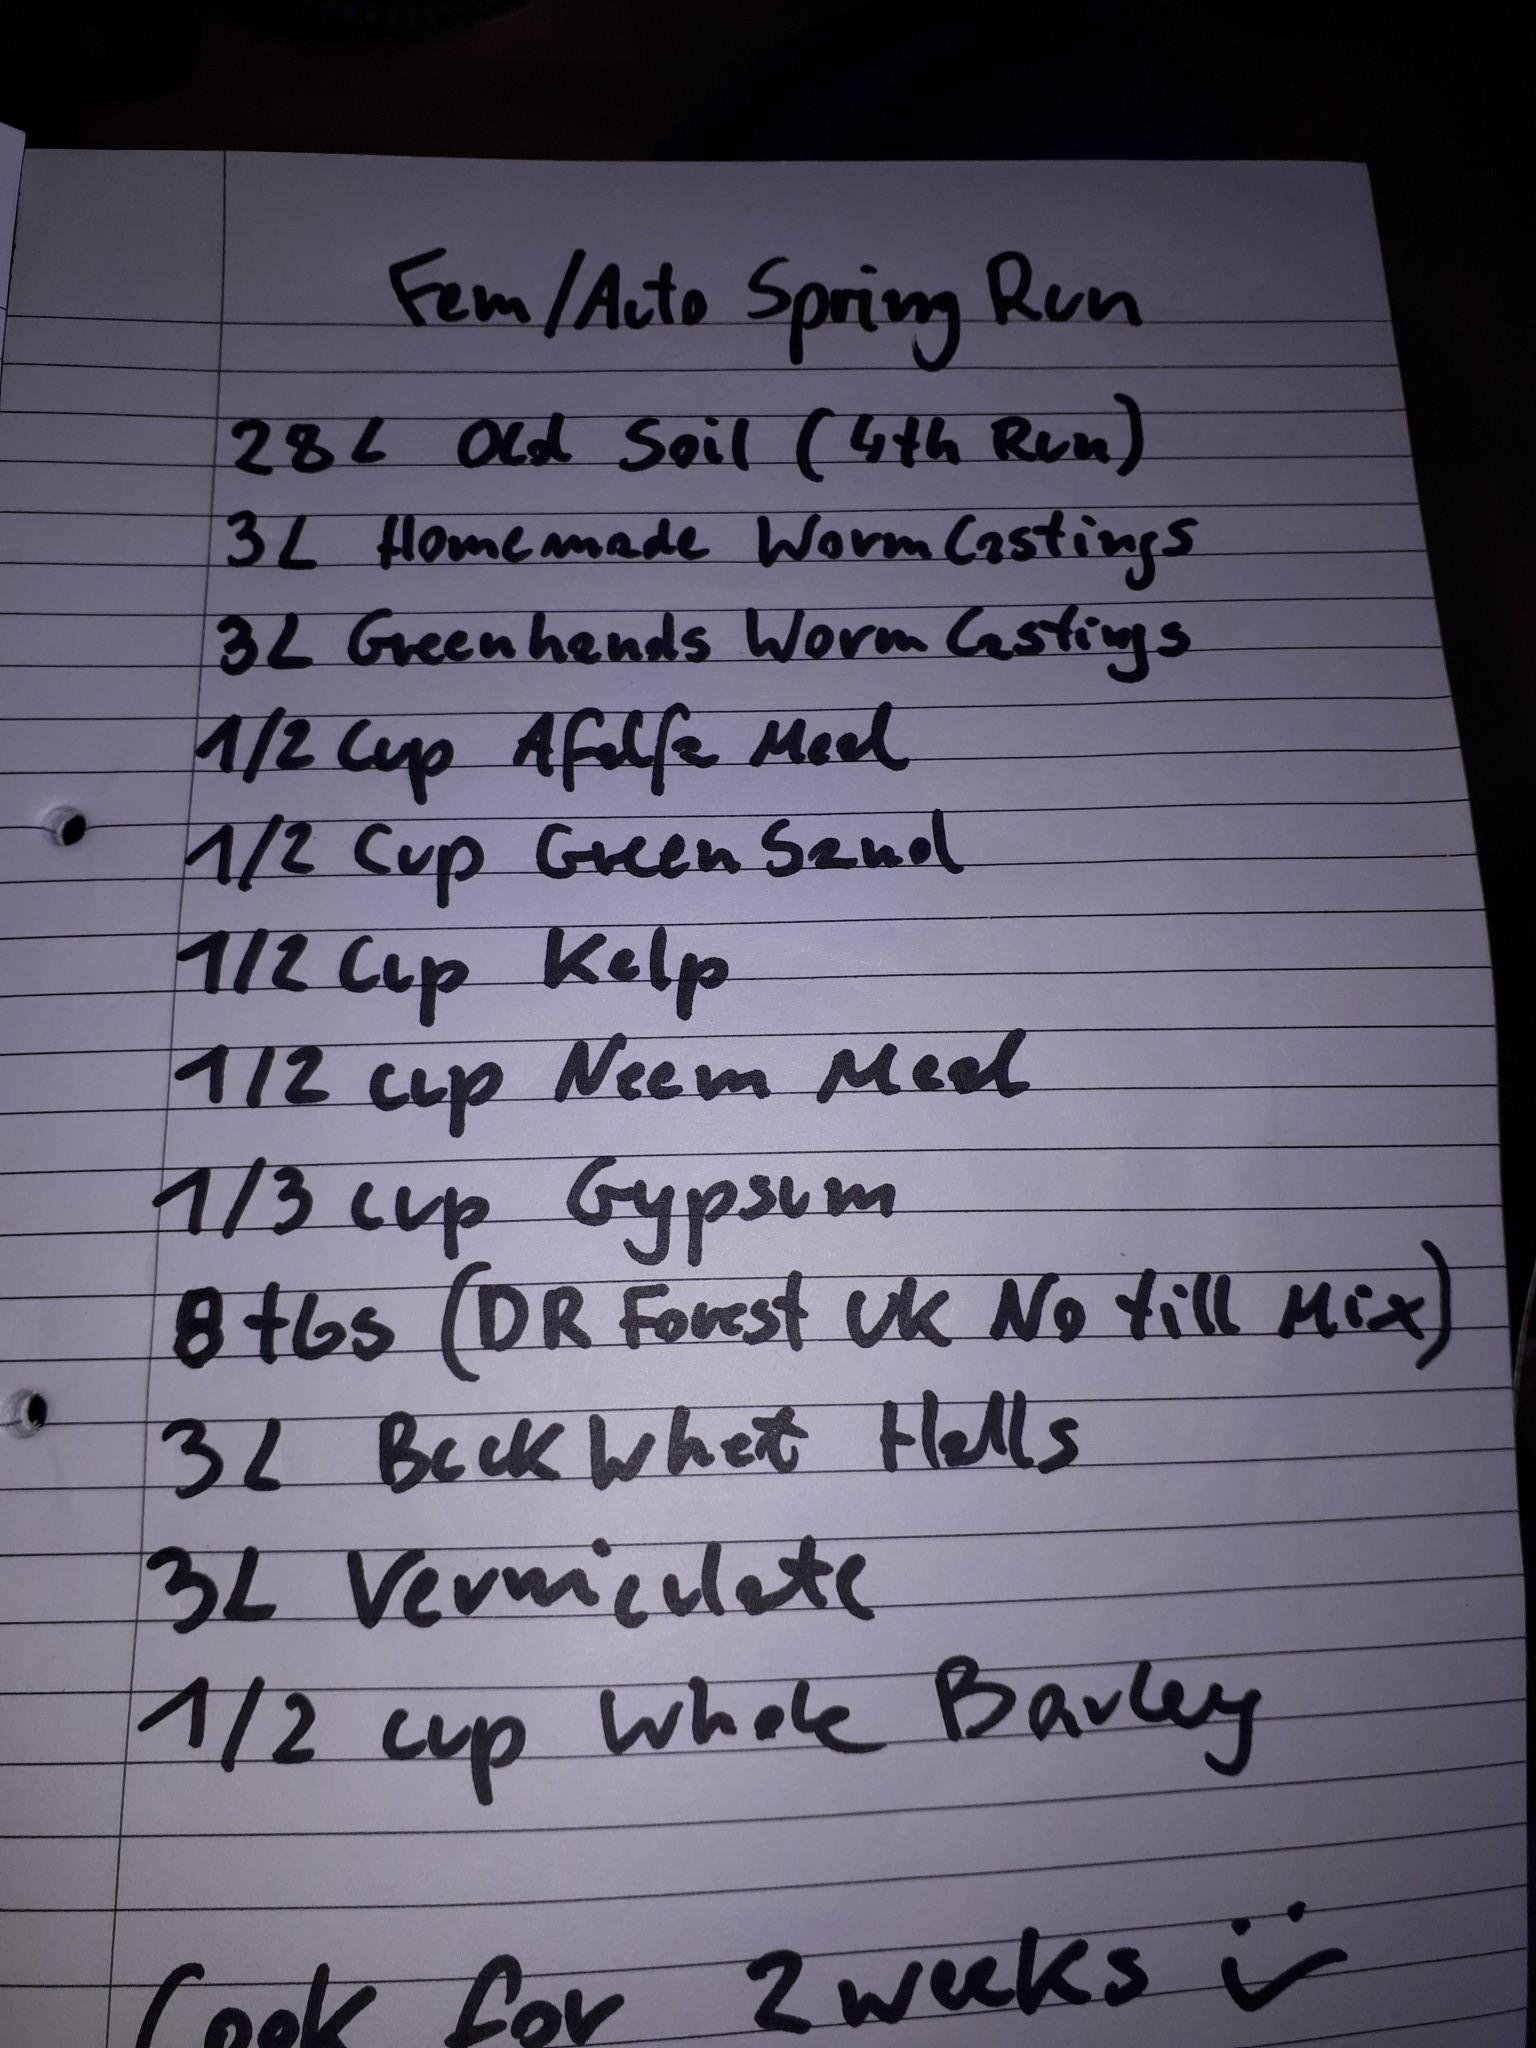 Fem/Auto Spring Run
28L Old Soil (4th Run)
3L Homemade Worm Castings
3L Greenhands Worm Castings
1/2 Cup Afalfa Meal
1/2 Cup Green Sand
1/2 Cup Kelp
1/2 cup Neem Meal
1/3 cup Gypsum
8 tbs (DR Forest UK No till Mix)
3L Buck Whet Halls
3L Vermiculate
1/2 cup Whole Barley
Cook for 2 weeks :)